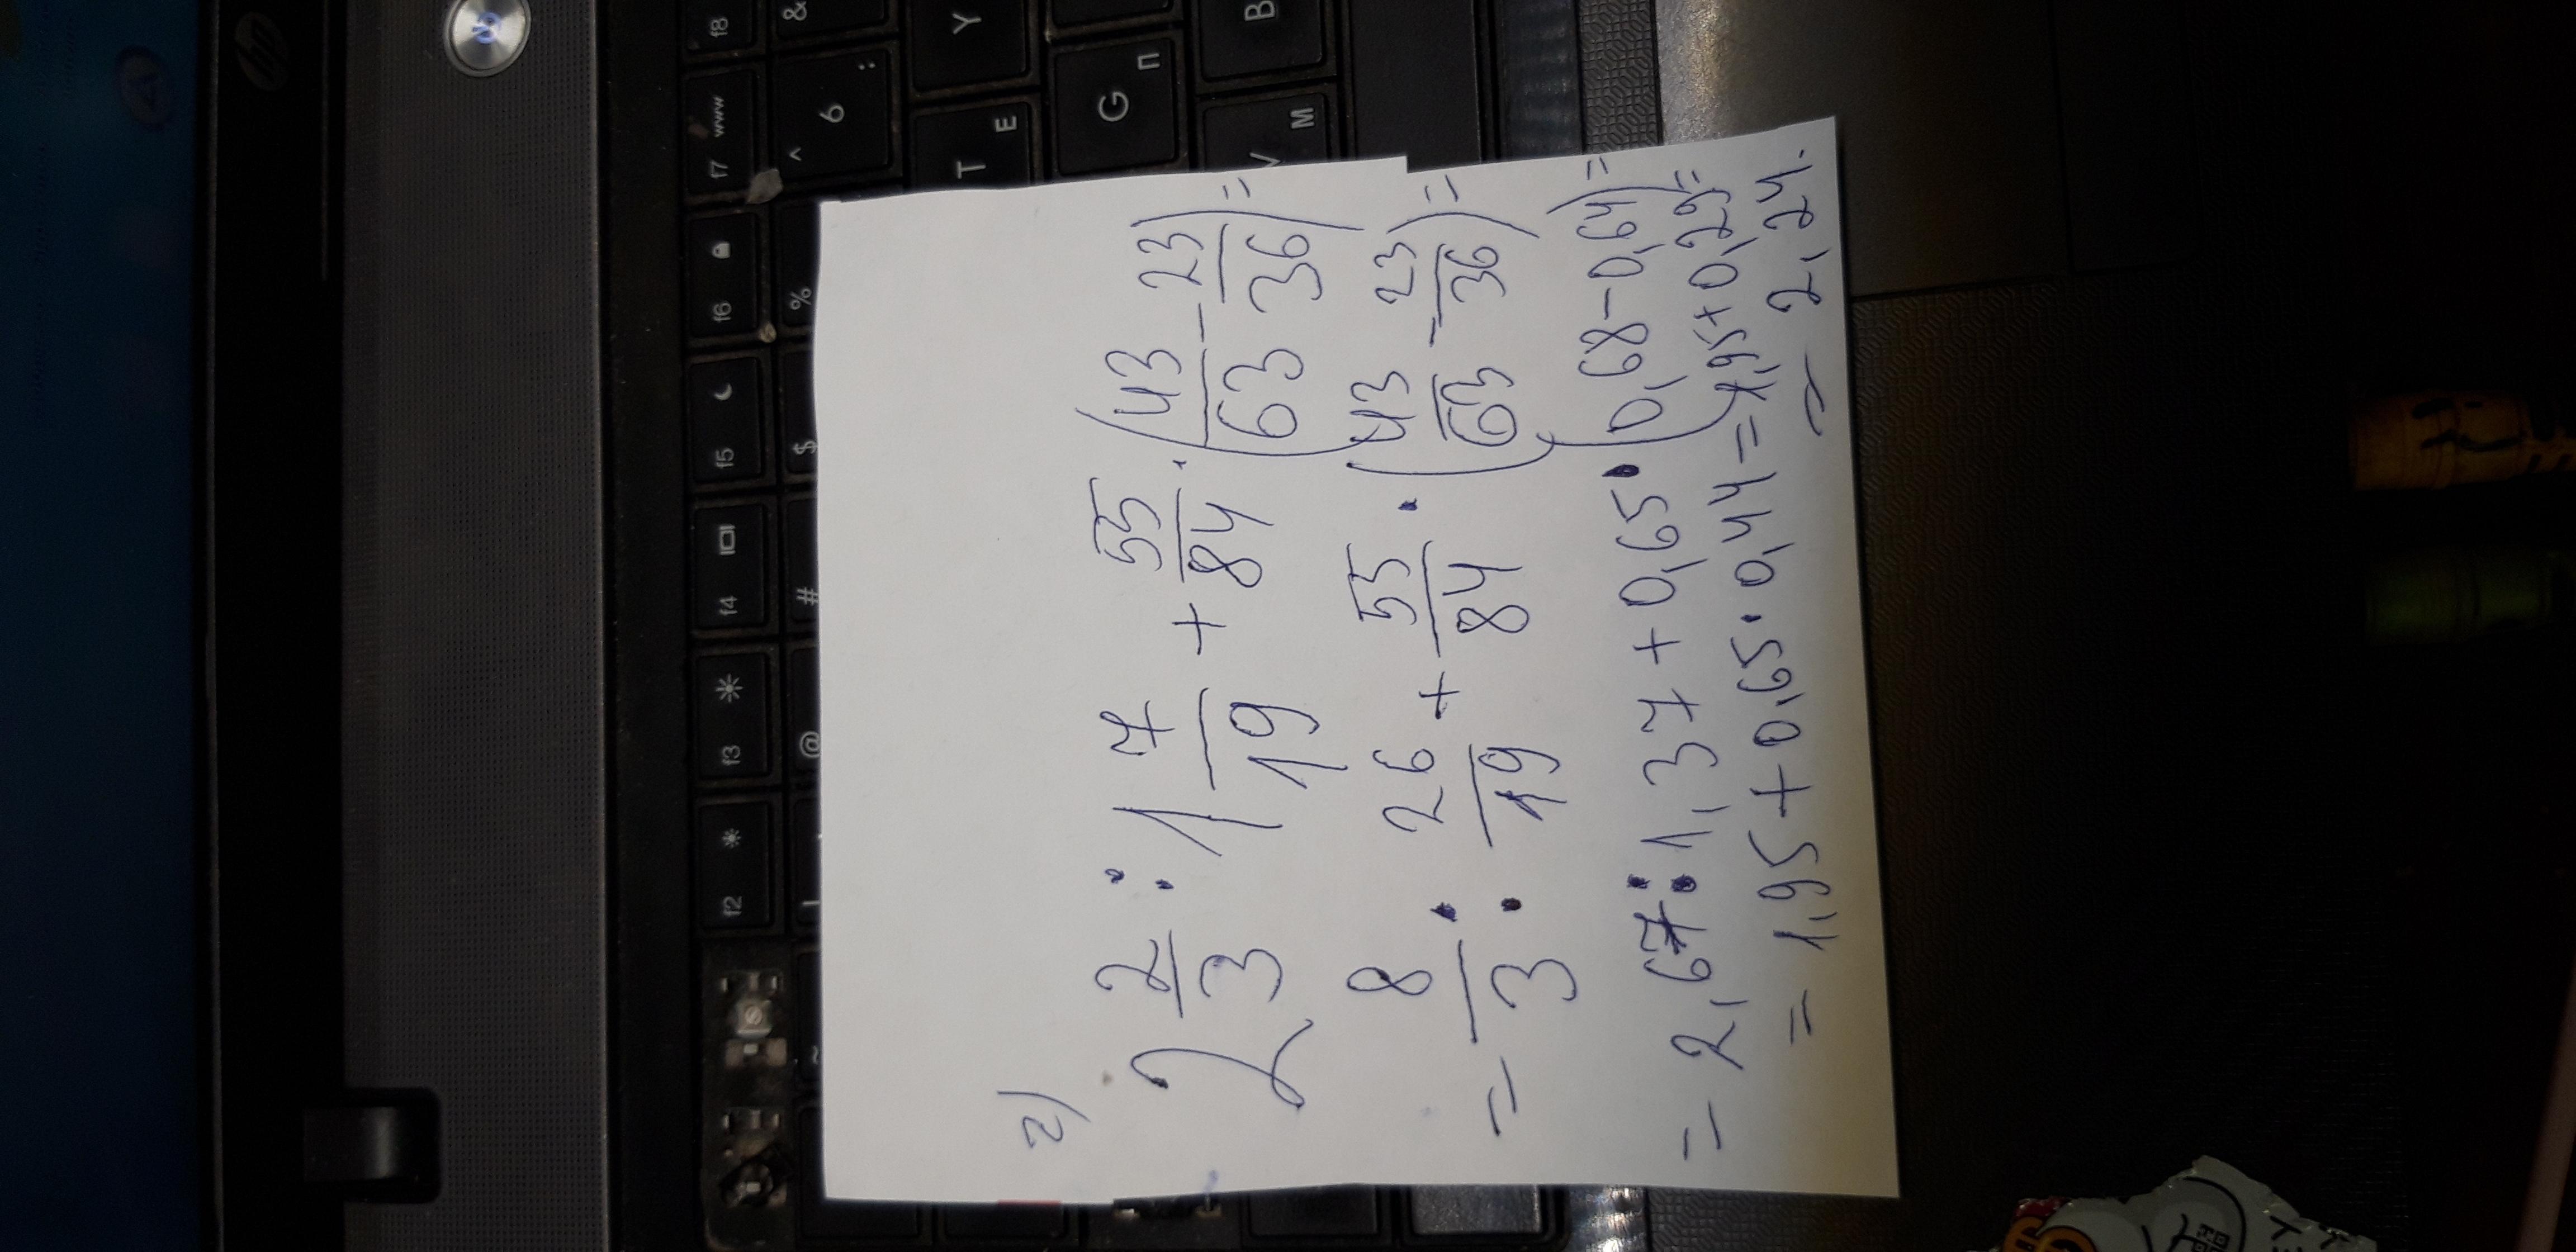 г)
2 2/3 : 1 7/19 + 55/84 · (43/63 - 23/36) =
= 8/3 : 26/19 + 55/84 · (43/63 - 23/36) =
= 2,67 : 1,37 + 0,65 · (0,68 - 0,64) =
= 1,95 + 0,65 · 0,44 = 1,95 + 0,29 =
= 2,24.
f2
f3
f4
f5
f6
f7 www
f8
@
#
$
%
^ 6 :
&
T Е
Y
G П
V М
B
hp